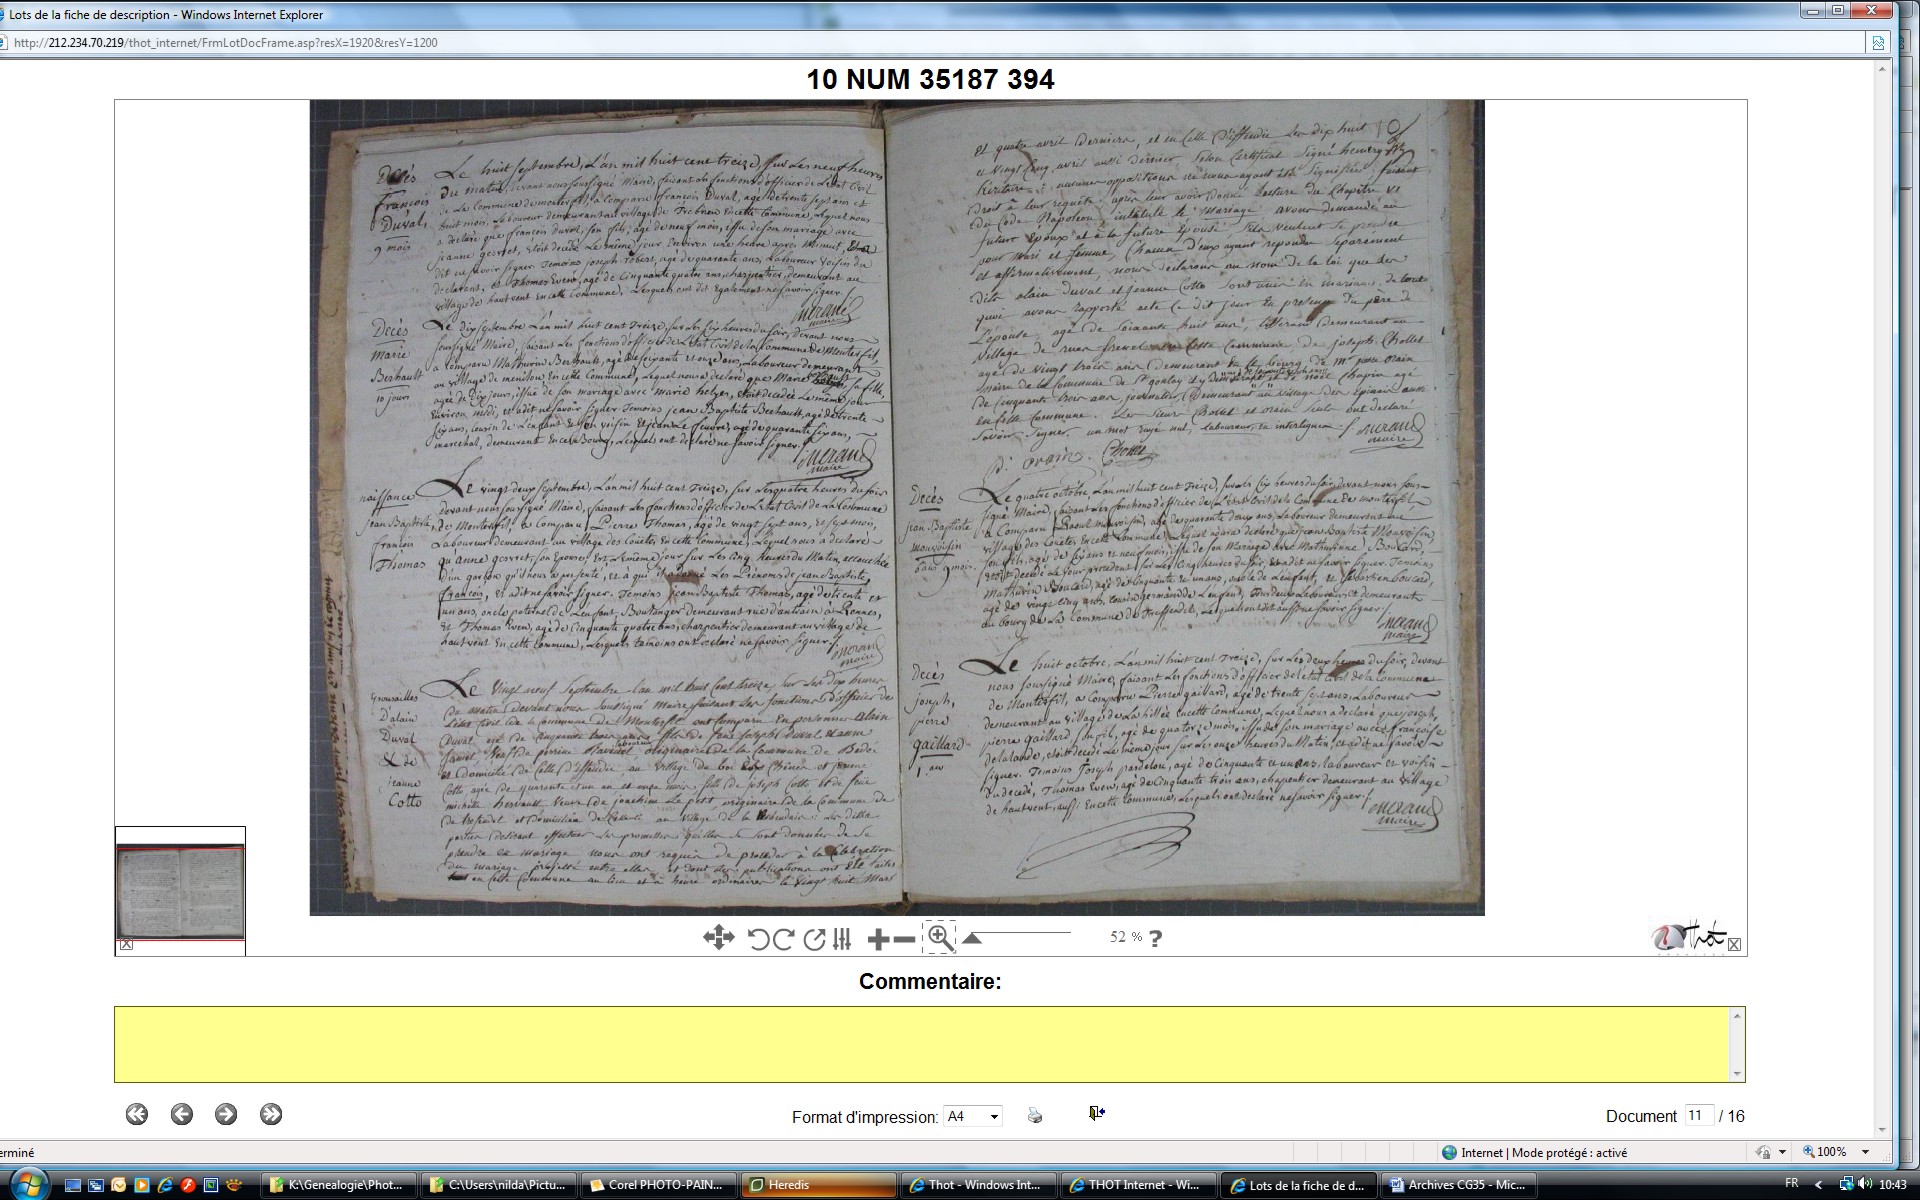 Lots de la fiche de description - Windows Internet Explorer
http://212.234.70.219/thot_internet/FrmLotDocFrame.asp?resX=1920&resY=1200
10 NUM 35187 394
Decès
François
Duval
9 mois
Le huit septembre, L'an mil huit cent treize, sur Les neuf heures
Du matin, devant nous soussigné Maire, faisant Les fonctions d'officier de L'état Civil
De La Commune de monterfil, a Comparu françois Duval, agé de trente sept ans et
huit mois, Laboureur demeurant au village de en cette Commune, Lequel nous
a déclaré que françois duval, son fils, agé de neuf mois, issu de son mariage avec
jeanne gosret, etoit décédé Le même jour Environ une heure après Minuit,
dit ne savoir signer. Temoins joseph robert, agé de quarante ans, Laboureur voisin du
déclarant, et Thomas Even, agé de Cinquante quatre ans, charpentier, demeurant au
village de hautvent en cette Commune, Lesquels ont dit egalement ne savoir signer.
maire
Decès
Marie
Berhault
10 jours
Le Dix Septembre L'an mil huit cent Treize, sur Les Six heures du soir, devant nous
soussigné Maire, faisant Les fonctions d'officier de L'état Civil de la Commune de Monterfil,
a Comparu Mathurin Berhault, agé de soixante et onze ans, Laboureur demeurant
au village de en cette Commune, Lequel nous a déclaré que Marie sa fille,
agée de Dix jours, issue de son mariage avec marie etoit décédée Le même jour
Environ midi, et a dit ne savoir signer Temoins jean Baptiste Berhault, agé de trente
Six ans, cousin de L'enfant et son voisin et jean Le feuvre, agé de quarante Six ans,
marechal, demeurant En ce Bourg, Lesquels ont declaré ne savoir signer
maire
naissance
jean Baptiste,
françois
Thomas
Le vingt deux septembre, L'an mil huit cent Treize, sur Les quatre heures du soir
devant nous soussigné Maire, faisant Les fonctions d'officier de L'état Civil de La Commune
de Monterfil, a Comparu Pierre Thomas, agé de vingt sept ans, et sept mois,
Laboureur demeurant au village des Couëtes En cette Commune, Lequel nous a déclaré
qu'anne gosret, son Epouse, Est Le même jour sur Les Cinq heures du Matin, accouchée
D'un garçon qu'il nous a presenté, et à qui il a donné Les Prénoms de jean Baptiste,
françois, et a dit ne savoir signer. Temoins jean Baptiste Thomas, agé de trente et
un ans, oncle paternel de L'enfant, Boulanger demeurant rue d'antrain à Rennes,
et Thomas Even, agé de Cinquante quatre ans, charpentier demeurant au village de
hautvent En cette Commune, Lesquels temoins ont declaré ne savoir signer
maire
D'alain
Duval
& de
jeanne
Cotto
Le vingt neuf Septembre L'an mil huit Cent treize, sur Les Dix heures
du matin devant nous soussigné maire faisant Les fonctions d'officier de
L'état Civil de la Commune de Monterfil ont Comparu En personnes alain
Duval fils de feu joseph Duval
originaire de la Commune de
et domicilié de Celle D'iffendic, au village du bois
Cotto agée de quarante et un an et onze mois, fille de joseph Cotto et de feue
veuve de joachim Le petit, originaire de la Commune de
de treffendel et domiciliée de Celle-ci au village de la
parties desirant effectuer Les promesses qu'elles se sont données de se
prendre en mariage nous ont requis de proceder à la Celebration
du mariage projetté entre elles, et dont les publications ont été faites
en cette Commune au lieu et à heure ordinaires le vingt huit Mars
et quatre avril derniers, et en Celle D'iffendic Les dix huit
et vingt Cinq avril aussi dernier, selon Certificat signé
aucunes oppositions ne nous ayant été signifiées, faisant
Droit à leur requête, après leur avoir donné lecture du Chapitre VI
du Code Napoleon, intitulé le Mariage avons demandé au
futur Epoux et à la future Epouse S'ils veulent se prendre
pour Mari et femme, Chacun D'eux ayant repondu separement
et affirmativement, nous declarons au nom de la loi que les
dits alain duval et jeanne Cotto sont unis en mariage, de tout
quoi avons rapporté acte ce dit jour En presence du père de
L'épouse agé de soixante huit ans,
village de en cette Commune, de joseph Chollet
agé de vingt trois ans Demeurant au bourg de Mr
maire de la Commune de St gonlay y demeurant
de Cinquante trois ans, journalier, Demeurant au village des Epinais aussi
en Cette Commune. Les Sieurs Chollet et orain seuls ont declaré
Savoir signer. un mot rayé nul, Laboureur, en interligne.
maire
orain Chollet
Decès
jean Baptiste
Mauvoisin
6 ans 9 mois.
Le quatre octobre, L'an mil huit cent Treize, sur Les Six heures du soir, devant nous sous-
signé Maire, faisant Les fonctions d'officier de L'état Civil de la Commune de monterfil,
a Comparu Raoul mauvoisin, agé de quarante deux ans, Laboureur demeurant au
village des Couëtes En cette Commune Lequel nous a déclaré que jean Baptiste Mauvoisin,
son fils, agé de Six ans et neuf mois, issu de son Mariage avec Mathurinne Boucard,
etoit décédé Le jour précédent sur Les Cinq heures du soir, et a dit ne savoir signer. Temoins
Mathurin Boucard, agé de Cinquante et un ans, oncle de L'enfant, et Sebastien boucard,
agé de vingt Cinq ans, cousin germain de L'enfant, tous deux Laboureurs et demeurants
au bourg de La Commune de treffendel, Lesquels ont dit aussi ne savoir signer
maire
Decès
joseph,
pierre
gaillard
1 an
Le huit octobre, L'an mil huit cent Treize, sur Les deux heures du soir, devant
nous soussigné Maire, faisant Les fonctions d'officier de L'état Civil de la Commune
de Monterfil, a Comparu Pierre gaillard, agé de trente Six ans, Laboureur
demeurant au village de La hillée en cette Commune, Lequel nous a déclaré que joseph,
pierre gaillard, son fils, agé de quatorze mois, issu de son mariage avec françoise
delalande, etoit décédé Le même jour sur Les onze heures du Matin, et a dit ne savoir
signer. Temoins joseph agé de Cinquante et un ans, laboureur et voisin
du décédé, Thomas Even, agé de Cinquante trois ans, charpentier demeurant au village
de hautvent, aussi En cette Commune, Lesquels ont declaré ne savoir signer
maire
52 % ?
Thot
Commentaire:
Format d'impression: A4
Document 11 / 16
erminé
Internet | Mode protégé : activé
100%
K:\Genealogie\Phot...
C:\Users\nilda\Pictu...
Corel PHOTO-PAIN...
Heredis
Thot - Windows Int...
THOT Internet - Wi...
Lots de la fiche de d...
Archives CG35 - Mic...
FR
10:43